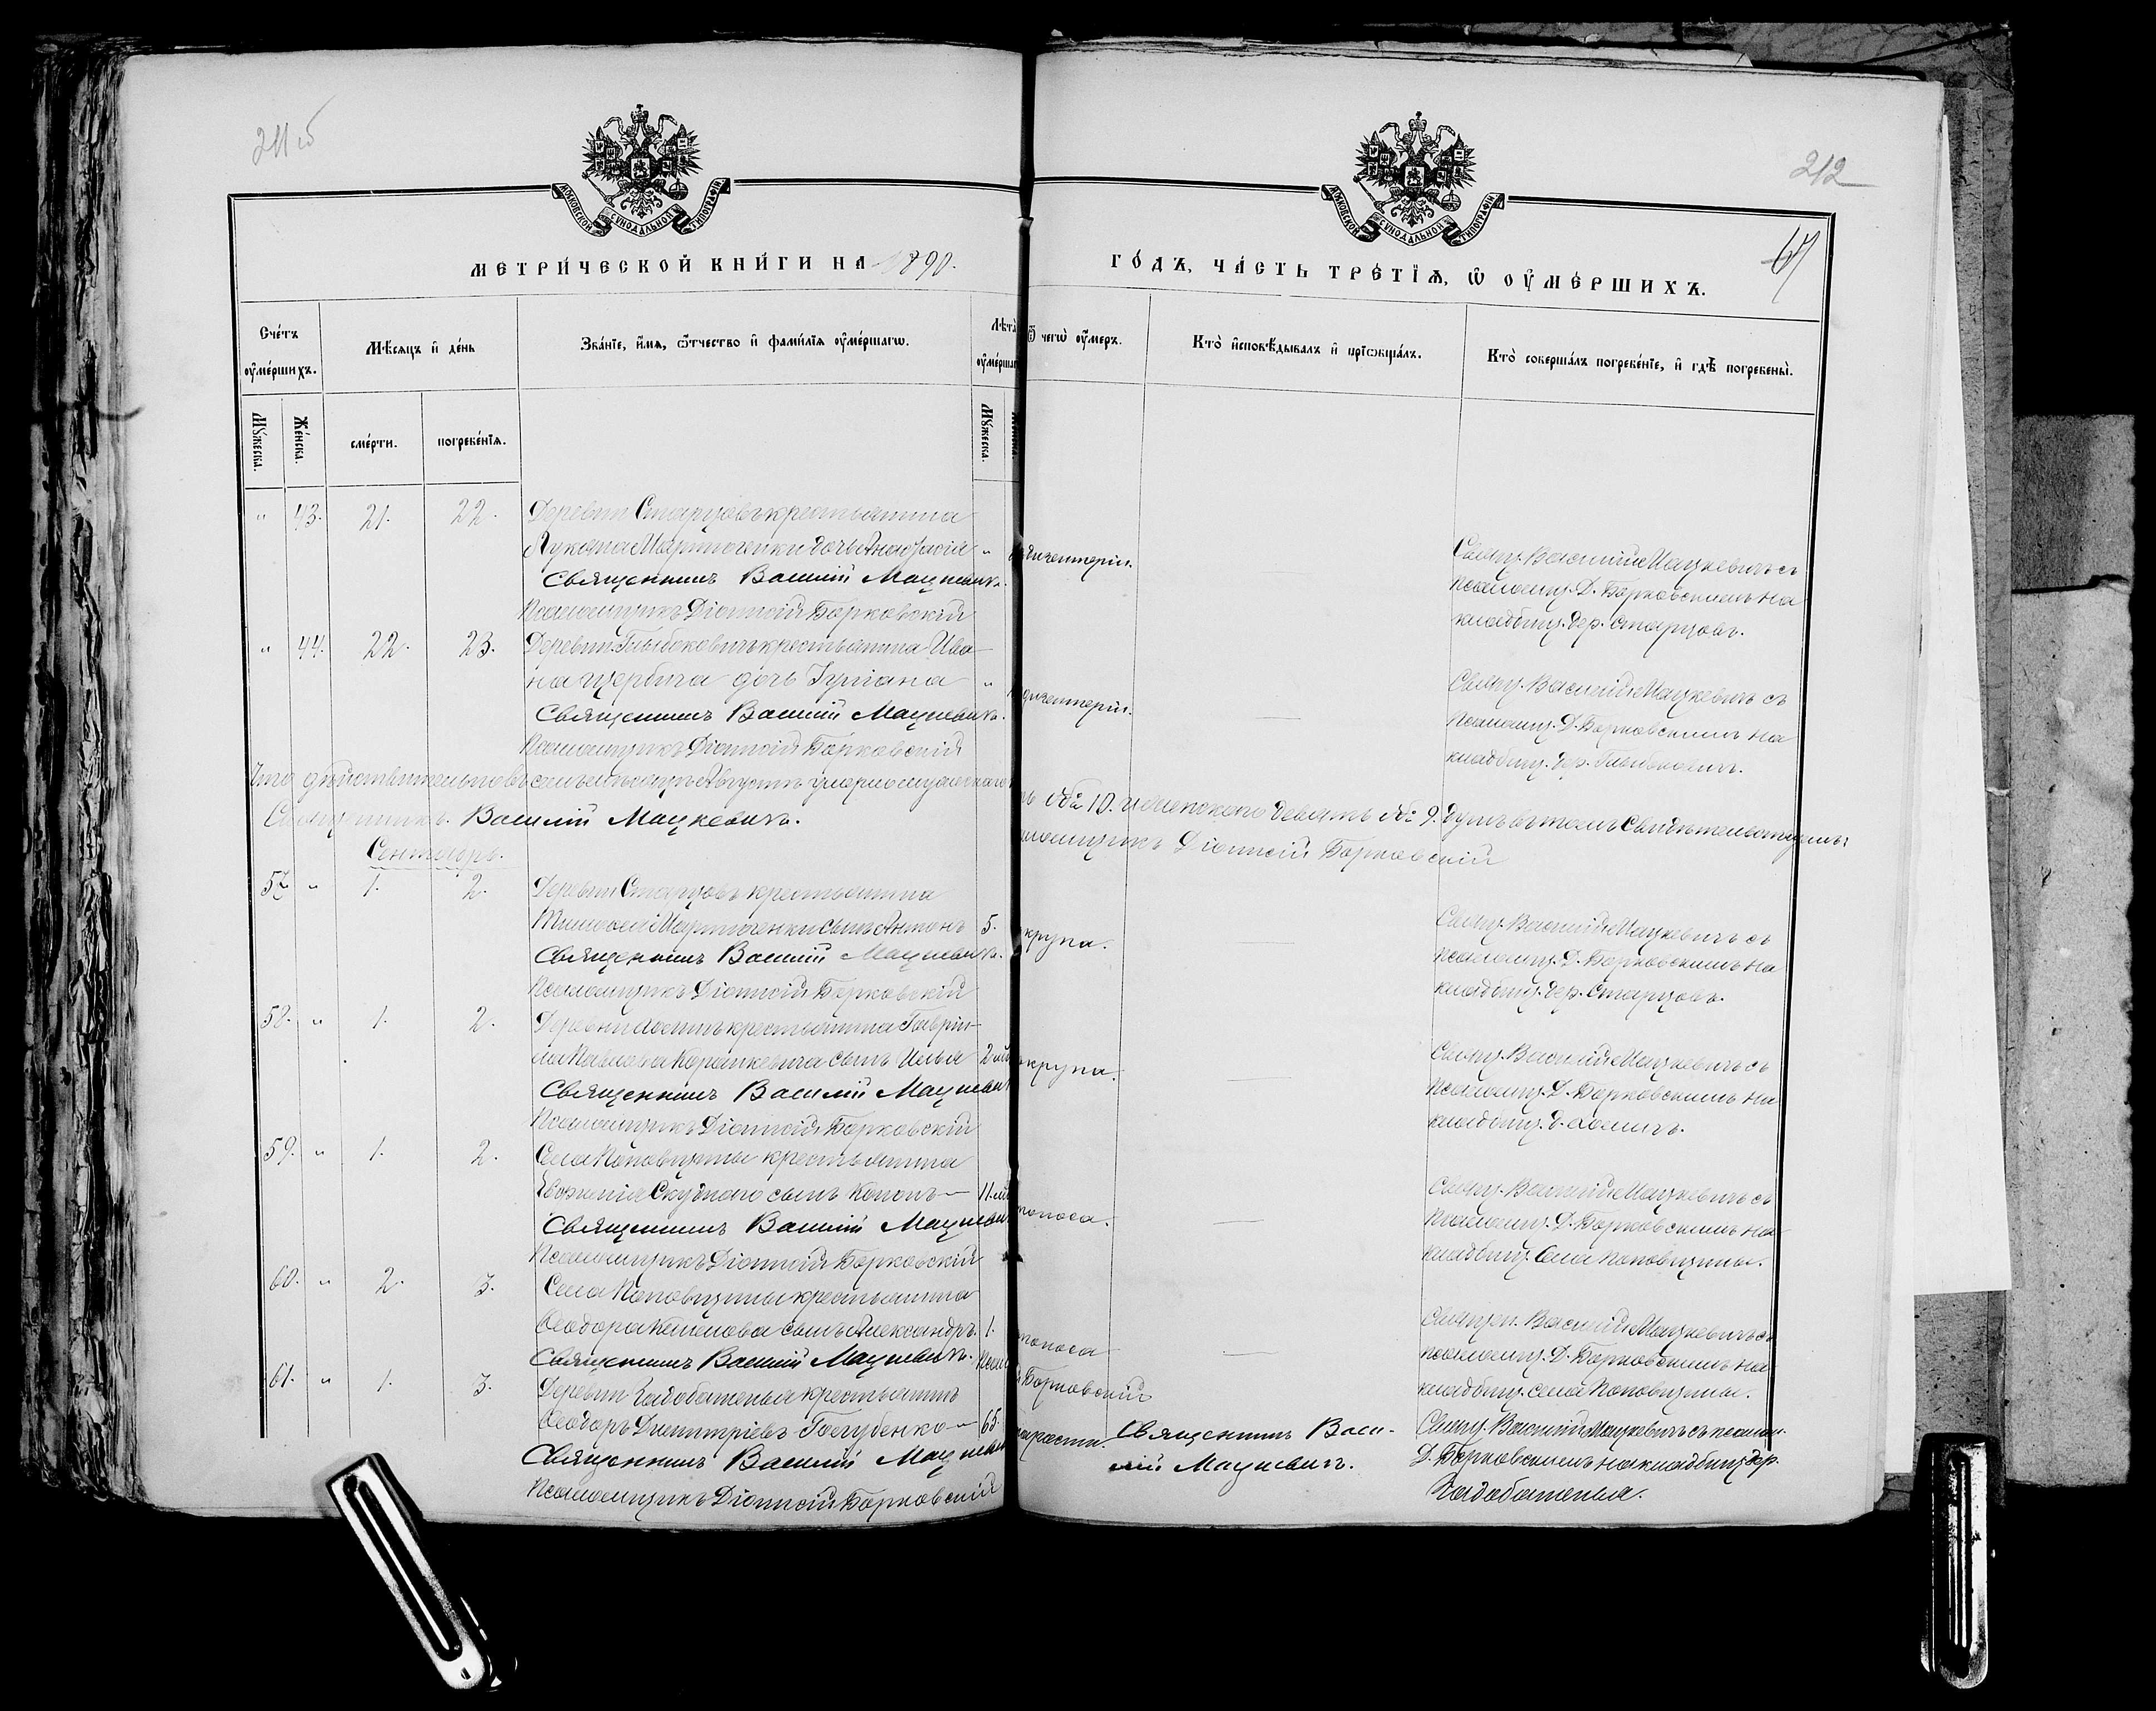 211 об
212
67
МОСКОВСКОЙ СѴНОДАЛЬНОЙ ТИПОГРАФІИ
МОСКОВСКОЙ СѴНОДАЛЬНОЙ ТИПОГРАФІИ
МЕТРИ́ЧЕСКОЙ КНИ́ГИ НА 1890.
ГО́ДЪ, ЧА́СТЬ ТРЕ́ТІѦ, Ѡ ОУ҆МЕ́РШИХЪ.
Сче́тъ оу҆ме́ршихъ.
Мѣ́сяцъ и҆ де́нь
Зва́ніе, и҆́мя, ѻ҆́тчество и҆ фами́лія оу҆ме́ршагѡ.
Лѣта̀ оу҆ме́ршаг
Ѿ чегѡ̀ оу҆́меръ.
Кто̀ и҆сповѣ́дывалъ и҆ прїѡбща́лъ.
Кто̀ соверша́лъ погребе́ніе, и҆ гдѣ̀ погребены̀.
Мꙋ́жеска.
Же́нска.
сме́рти.
погребе́нія.
Мꙋ́жеска.
" 43. 21. 22. Деревни Старцовъ крестьянина
Лукаша Мартюченки дочь Анастасія " дизентеріи.
Священникъ Василій Мацкевичъ.
Псаломщикъ Діонисій Борковскій
Свящ. Василій Мацкевичъ съ
псаломщ. Д. Борковскимъ на
кладбищ. дер. Старцовъ.
" 44. 22. 23. Деревни Глыбоковичъ крестьянина Ива-
на Щербича дочь Іуліана " дизентеріи.
Священникъ Василій Мацкевичъ.
Псаломщикъ Діонисій Борковскій
Свящ. Василій Мацкевичъ съ
псаломщ. Д. Борковскимъ на
кладбищ. дер.
Что дѣйствительно въ семъ мѣсяцѣ Августѣ умерло мужескаго
об. 10. и женскаго девять об. 9. душъ въ томъ свидѣтельствуемъ:
Священникъ Василій Мацкевичъ.
Діонисій Борковскій
Сентябрь.
57. " 1. 2. Деревни Старцовъ крестьянина
Тимофея Мартюченки сынъ Антонъ 5. крупа.
Священникъ Василій Мацкевичъ.
Псаломщикъ Діонисій Борковскій
Свящ. Василій Мацкевичъ съ
псаломщ. Д. Борковскимъ на
кладбищ. дер. Старцовъ.
58. " 1. 2. Деревни крестьянина Гаврі-
ла Павлова сынъ Илья 2 крупа.
Священникъ Василій Мацкевич
Псаломщикъ Діонисій Борковскій
Свящ. Василій Мацкевичъ съ
псаломщ. Д. Борковскимъ на
кладбищ. д.
59. " 1. 2. Села Поповщины крестьянина
Евфимія Скуднаго сынъ Кононъ 11 поноса.
Священникъ Василій Мацкев
Псаломщикъ Діонисій Борковскій
Свящ. Василій Мацкевичъ съ
псаломщ. Д. Борковскимъ на
кладбищ. села Поповщины.
60. " 2. 3. Села Поповщины крестьянина
Ѳеодора сынъ Александръ. 1. поноса
Священникъ Василій Мацкевичъ. Борковскій
Священ. Василій Мацкевичъ съ
псаломщ. Д. Борковскимъ на
кладбищ. села Поповщины.
61. " 1. 3. Деревни крестьянинъ
Ѳеодоръ Димитріевъ Голубенко 65.
Священникъ Василій Мацкев
Псаломщикъ Діонисій Борковскій
Священникъ Васи-
лій Мацкевичъ.
Свящ. Василій Мацкевичъ съ псалом.
Д. Борковскимъ на кладбищ. дер.